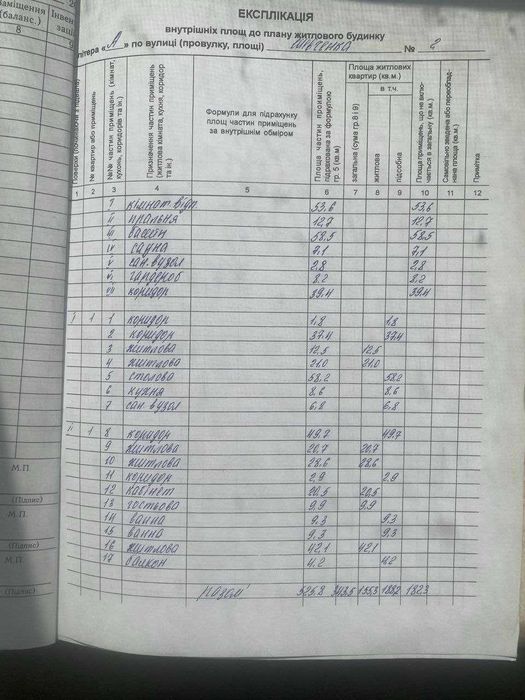 ЕКСПЛІКАЦІЯ
внутрішніх площ до плану житлового будинку
літера «А» по вулиці (провулку, площі) Шевченка № 2
№ квартир або приміщень
№№ частин приміщень (кімнат, кухонь, коридорів та ін.)
Призначення частин приміщень (житлова кімната, кухня, коридор та ін.)
Формули для підрахунку площ частин приміщень за внутрішнім обміром
Площа частин приміщень, підрахована за формулою гр. 5 (кв.м)
Площа житлових квартир (кв.м.)
загальна (сума гр 8 і 9)
в т.ч.
житлова
підсобна
Площа приміщень, що не включається в загальну (кв.м.)
Самовільно зведена або переобладнана площа (кв.м.)
Примітка
1 2 3 4 5 6 7 8 9 10 11 12
I кімнат. відп. 53,6 53,6
II пральня 12,7 12,7
III басейн 58,5 58,5
IV сауна 7,1 7,1
V сан. вузол 2,8 2,8
VI гардероб 8,2 8,2
VII коридор 39,4 39,4
I 1 1 коридор 1,8 1,8
2 коридон 37,4 37,4
3 житлова 12,5 12,5
4 житлова 21,0 21,0
5 столова 58,2 58,2
6 кухня 8,6 8,6
7 сан. вузол 6,8 6,8
II 1 8 коридон 49,7 49,7
9 житлова 20,7 20,7
10 житлова 28,6 28,6
11 коридон 2,9 2,9
12 кабінет 20,5 20,5
13 гостьова 9,9 9,9
14 ванна 9,3 9,3
15 ванна 9,3 9,3
16 житлова 42,1 42,1
17 балкон 4,2 4,2
разом 525,8 343,5 155,3 188,2 182,3
(баланс.)
8
М.П.
(Підпис)
М.П.
(Підпис)
М.П.
(Підпис)